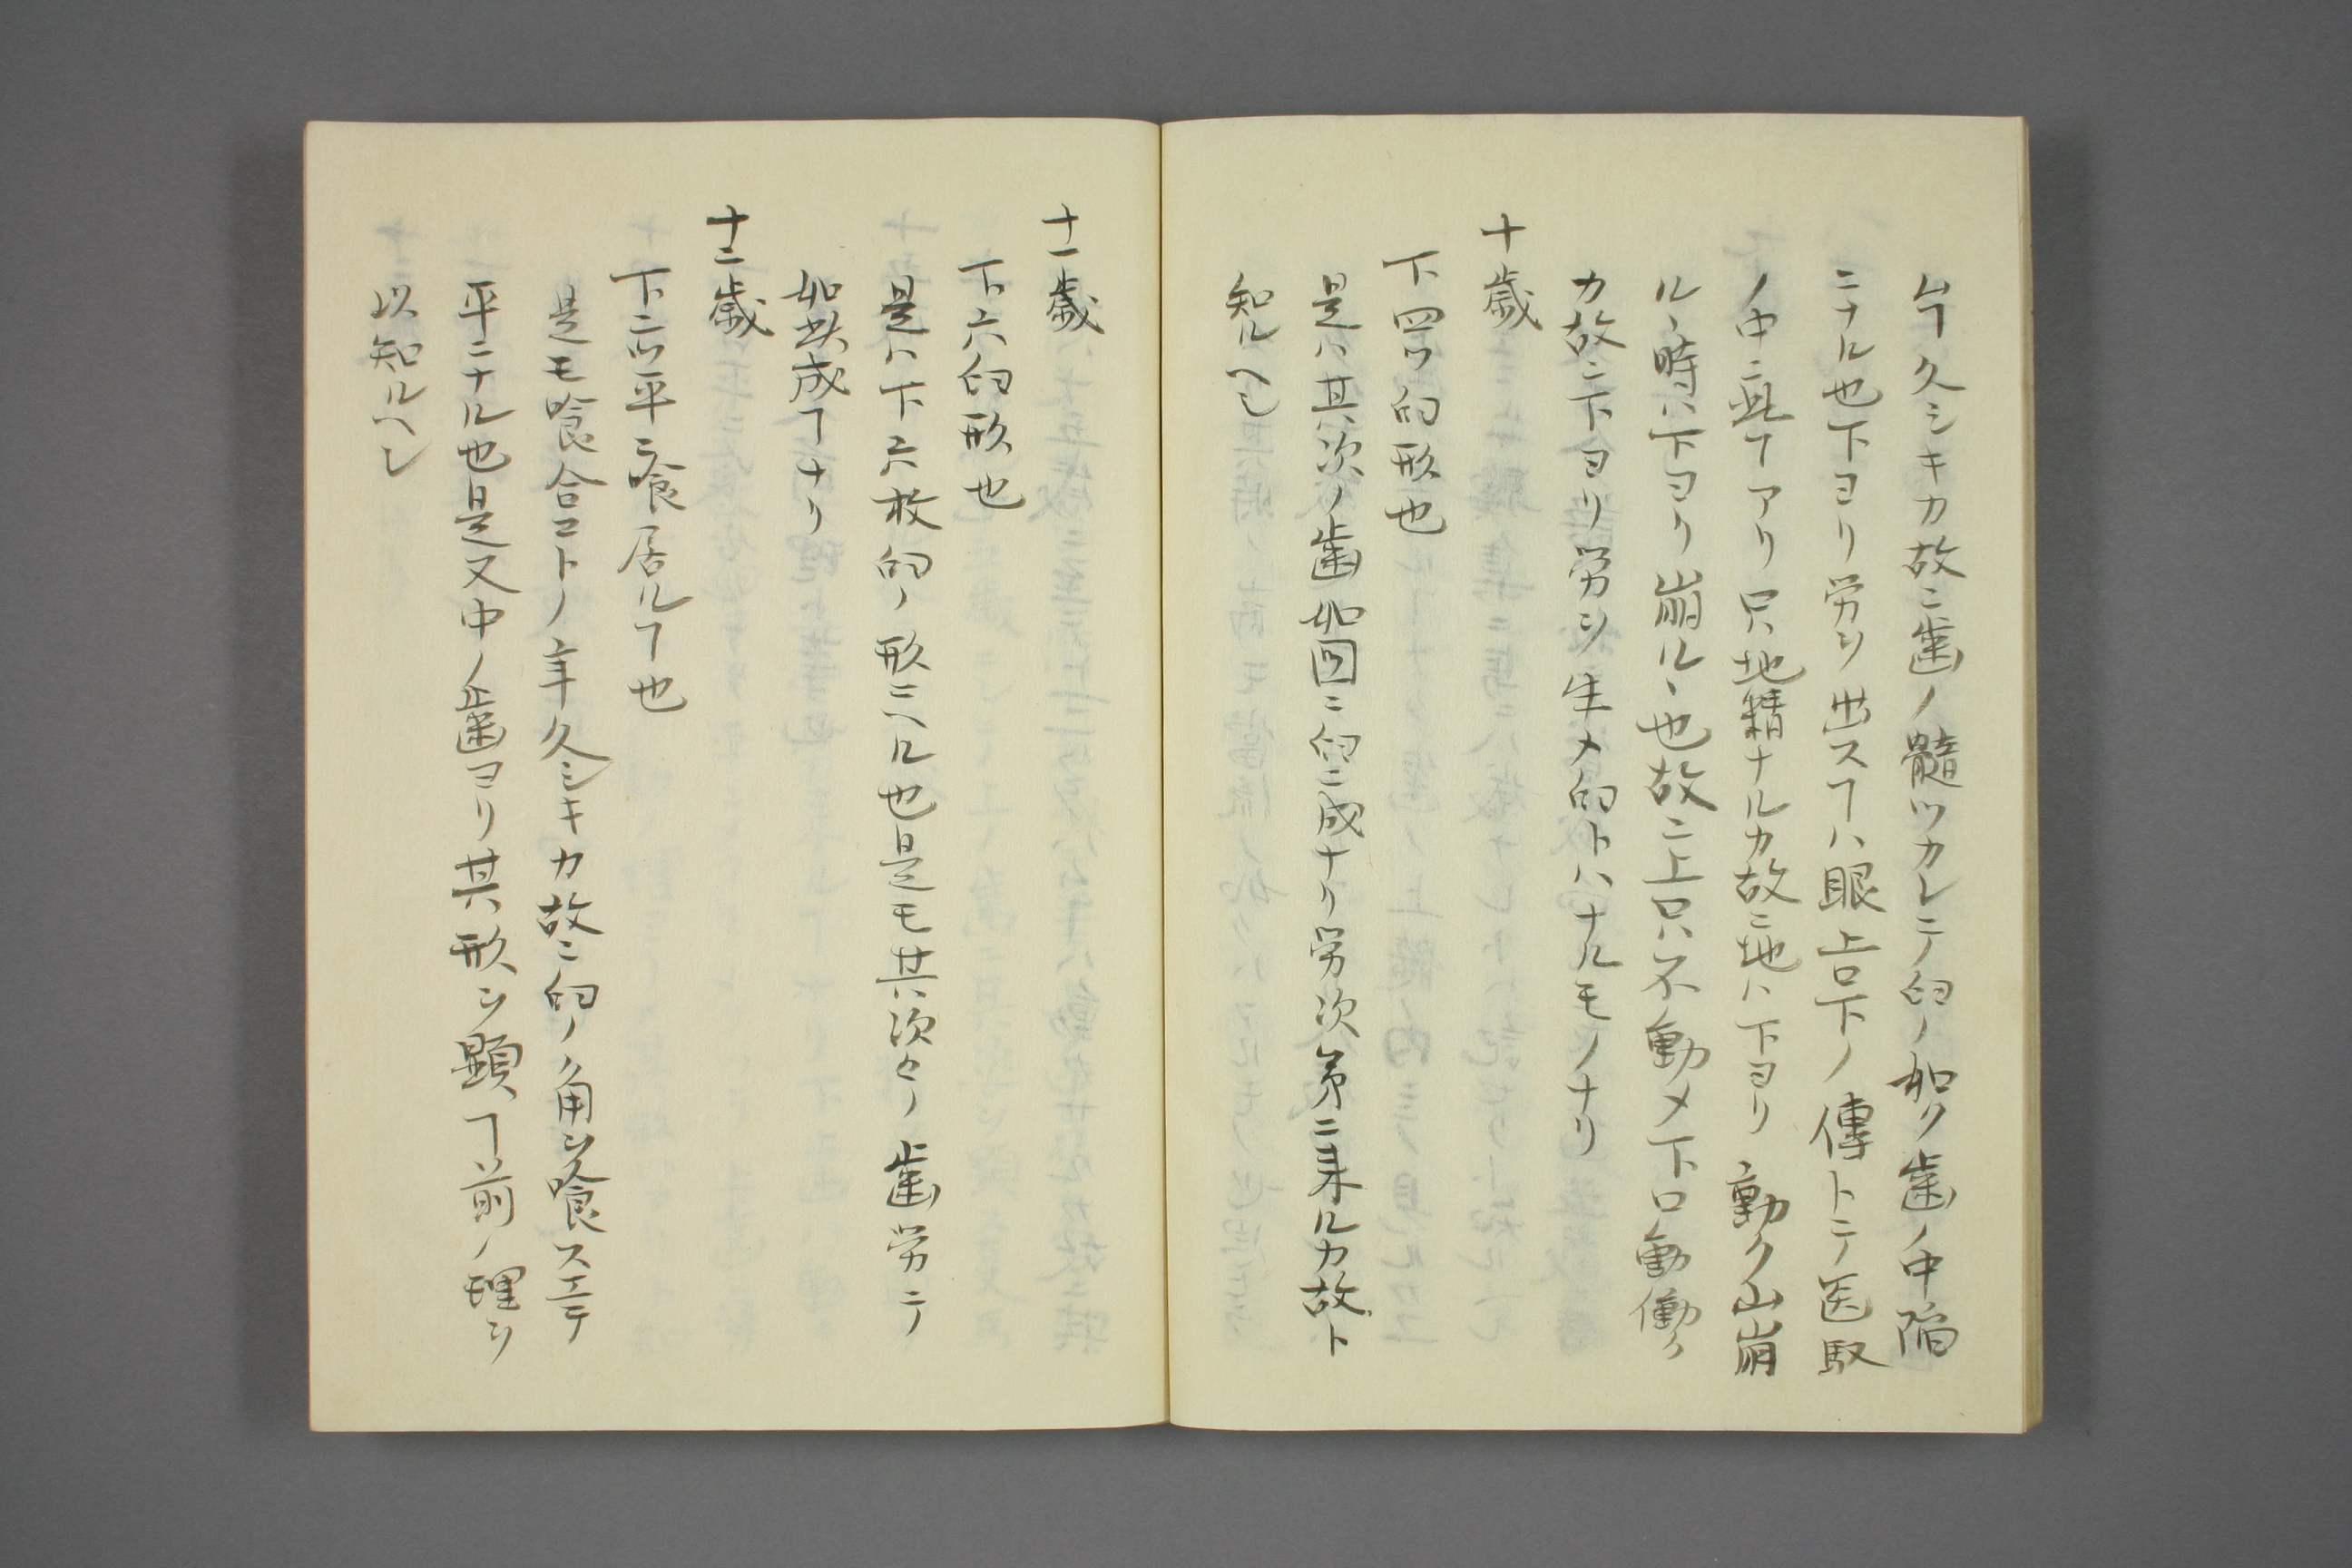 𬼂久シキカ故ニ歯ノ髓ツカレテ臼ノ如ク歯ノ中陷
ニナル也下ヨリ労シ出スヿハ眼上口下ノ傳トテ医馭
ノ中ニ此ヿアリ只地精ナルカ故ニ地ハ下ヨリ動ク山崩
ルヽ時ハ下ヨリ崩ルヽ也故ニ上口ハ不動メ下口動働ク
カ故ニ下ヨリ労シ生メ臼トハナルモノナリ
十歳
下四ツ臼形也
是ハ其次ノ歯如図ニ臼ニ成ナリ労次第ニ来ルカ故ト
知ルヘシ
十一歳
下六臼形也
是ハ下六枚臼ノ形ニヘル也是モ其次々ノ歯労テ
如此成ヿナリ
十二歳
下二ツ平ニ喰居ルヿ也
是モ喰合コトノ年久シキカ故ニ臼ノ角ヲ喰スエテ
平ニナル也是又中ノ歯ヨリ其形ヲ顕ヿ前ノ理ヲ
以知ルヘシ